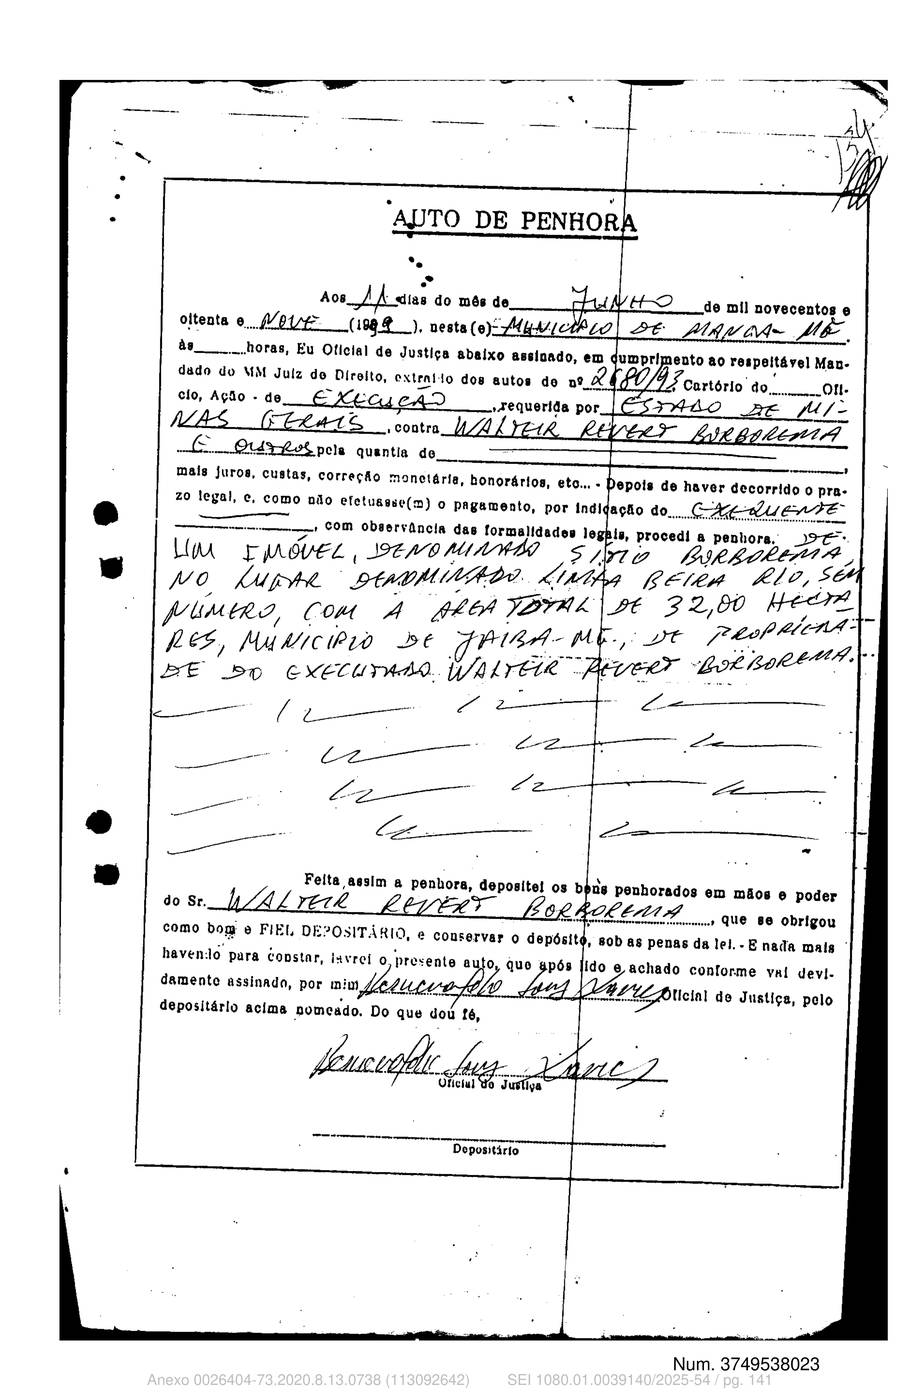 AUTO DE PENHORA
Aos 11 dias do mês de JUNHO de mil novecentos e
oitenta e NOVE (1999), nesta(e) MUNICIPIO DE MANGA-MG.
às horas, Eu Oficial de Justiça abaixo assinado, em cumprimento ao respeitável Man-
dado do MM Juiz de Direito, extraído dos autos de nº 2680/93 Cartório do Ofí-
cio, Ação - de EXECUÇÃO, requerida por ESTADO DE MI-
NAS GERAIS, contra WALTEIR REVERT BORBOREMA
E OUTROS pela quantia de
mais juros, custas, correção monetária, honorários, etc... - Depois de haver decorrido o pra-
zo legal, e, como não efetuasse(m) o pagamento, por indicação do EXEQUENTE
, com observância das formalidades legais, procedi a penhora, DE
UM IMÓVEL, DENOMINADO SÍTIO BORBOREMA,
NO LUGAR DENOMINADO LINHA BEIRA RIO, SEM
NÚMERO, COM A ÁREA TOTAL DE 32,00 HECTA
RES, MUNICIPIO DE JAIBA-MG, DE PROPRIEDA-
DE DO EXECUTADO WALTEIR REVERT BORBOREMA.
Feita, assim a penhora, depositei os bens penhorados em mãos e poder
do Sr. WALTEIR REVERT BORBOREMA, que se obrigou
como bom e FIEL DEPOSITÁRIO, e conservar o depósito, sob as penas da lei. - E nada mais
havendo para constar, lavrei o presente auto, que após lido e achado conforme vai devi-
damente assinado, por mim Oficial de Justiça, pelo
depositário acima nomeado. Do que dou fé,
Oficial de Justiça
Depositário
Num. 3749538023
Anexo 0026404-73.2020.8.13.0738 (113092642) SEI 1080.01.0039140/2025-54 / pg. 141